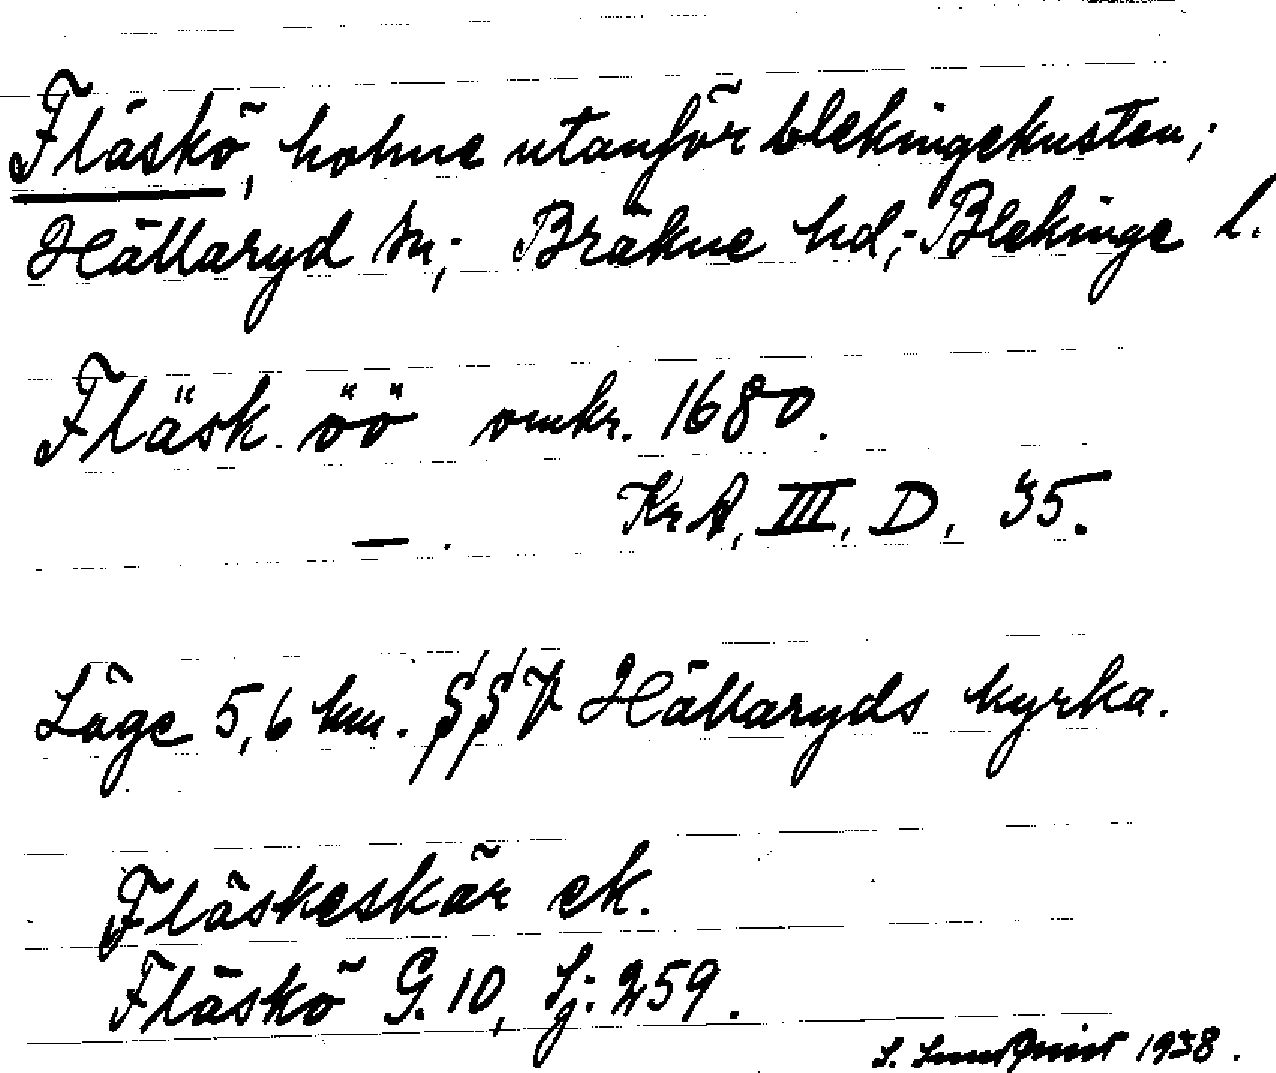 Fläskö, holme utanför blekingekusten;
Hällaryd sn; Bräkne hd; Blekinge l.
Fläsk öö omkr. 1680.
— . KrA, III, D, 35.
Läge 5,6 km. SSV Hällaryds kyrka.
Fläskeskär ek.
Fläskö G. 10, Sj: 259.
S. 1938.